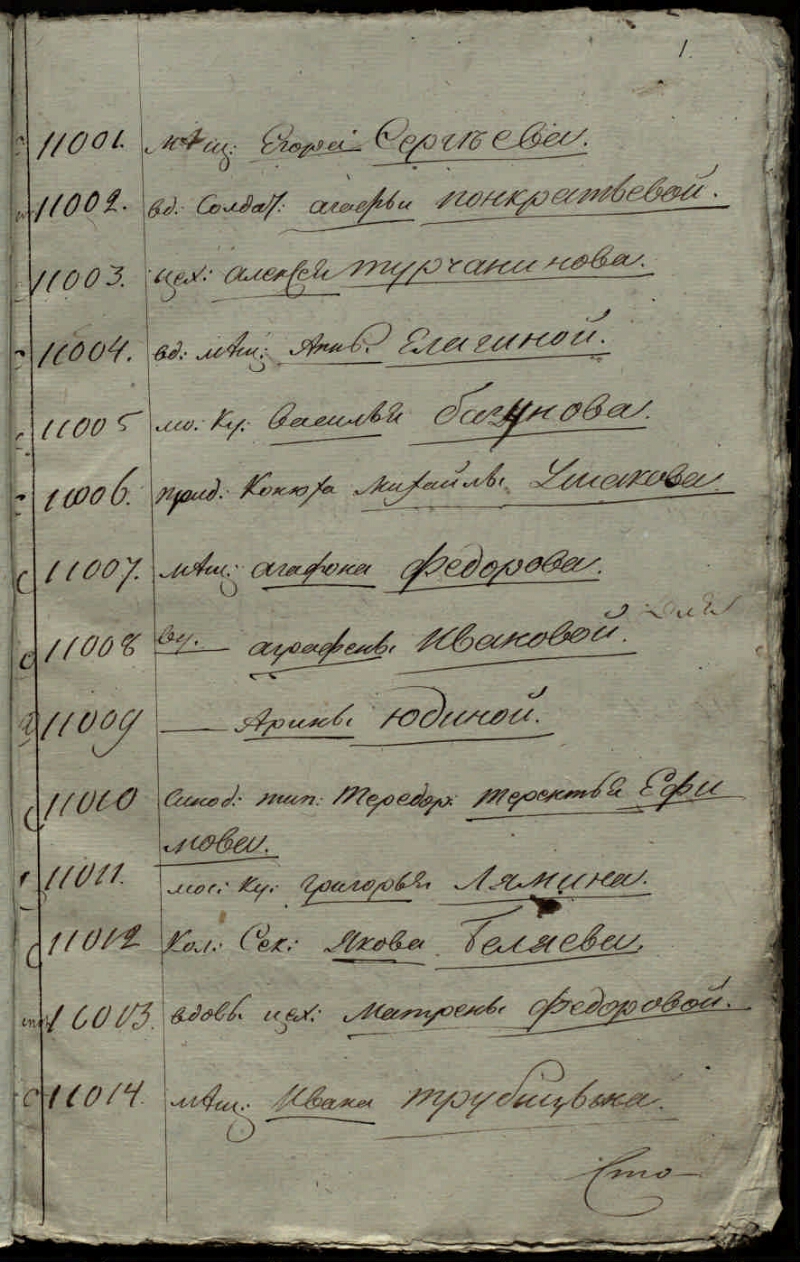 1.
11001. мѣщ: Егора Сергѣева.
11002. вд. Солдат: агафьи понкратьевой.
11003. цех: алексѣя турчанинова.
11004. вд: мѣщ: Анны Елагиной.
11005 мо. Ку: Василья багунова.
11006. прид: Конюха Михайлы Ушакова
11007. мѣщ: агафона Федорова.
11008 ву. аграфены Ивановой.
11009 — Арины Юдиной.
11010 Синод: тип: Тередор: терентья Ефи
мова.
11011. мос: ку: григорья Лямина.
11012 Кол: Сек: Якова Беляева.
11013. вдовы цех: Матрены Федоровой.
11014. мѣщ: Ивана трубицына.
Сто